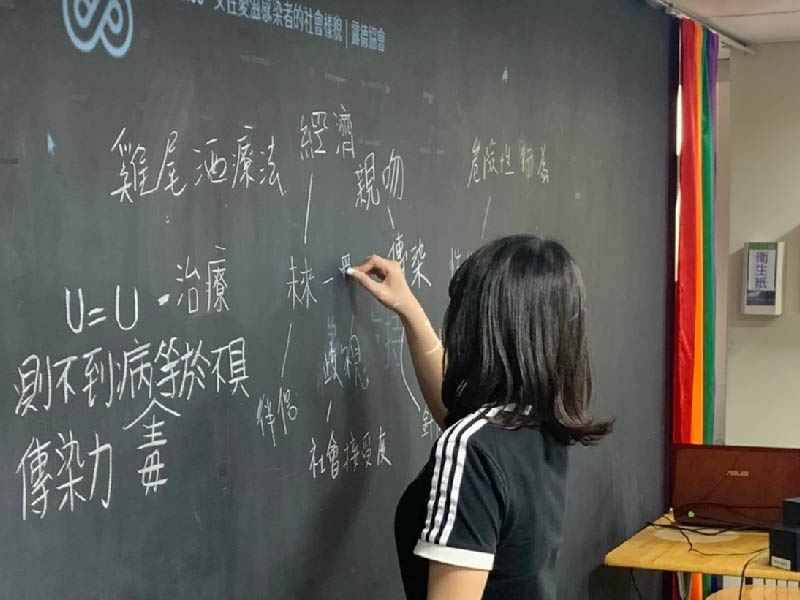 愛滋感染者的社會樣貌｜露德協會
經濟
雞尾酒療法
親吻
危險性行為
傳染
U=U
治療
未來
測不到病等於不具
毒
歧視
傳染力
伴侶
社會接受度
衛生紙
ASUS